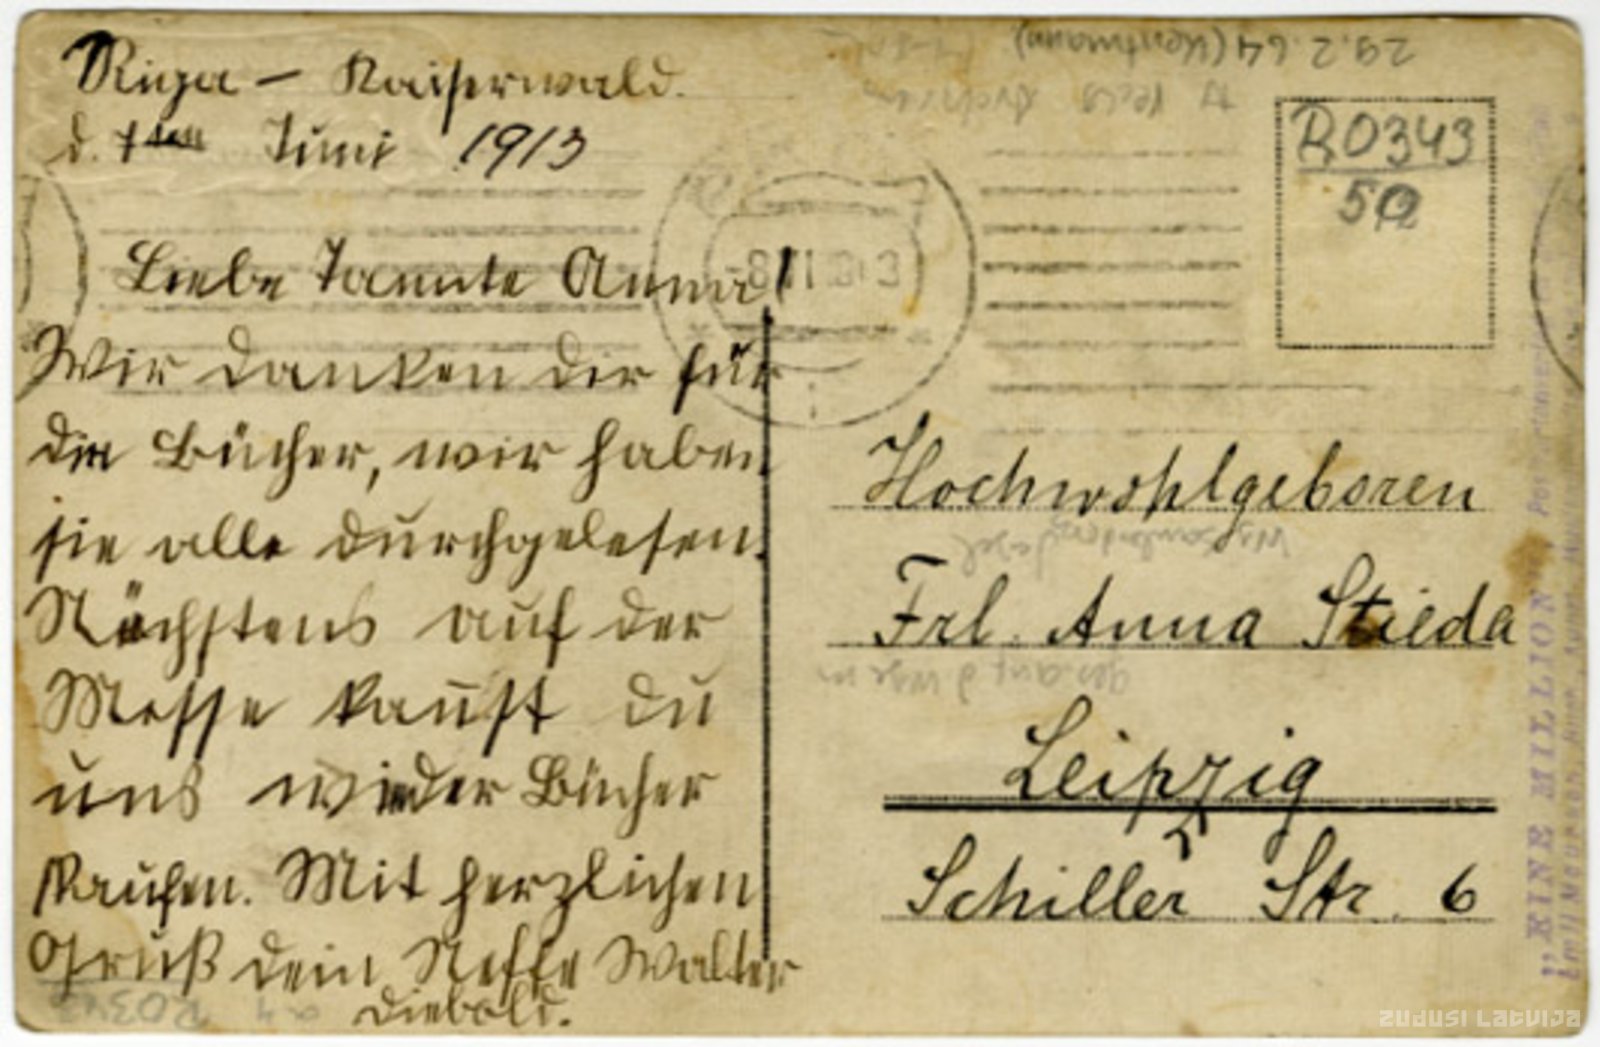 Riga – Kaiserwald.
d. 1ten Juni 1913
Liebe Tannte Anna!
Wir danken dir für
die Bücher, wir haben
sie alle durchgelesen.
Nächstens auf der
Messe kannst du
uns wieder Bücher
kaufen. Mit herzlichen
Gruß dein Neffe Walter
Diebold.
R0343
50
Hochwohlgeboren
Frl. Anna Stieda
Leipzig
Schiller Str. 6
29.2.64 (Kentmann)
R0343
"EINE MILLION"
ZUDUSI LATVIJA